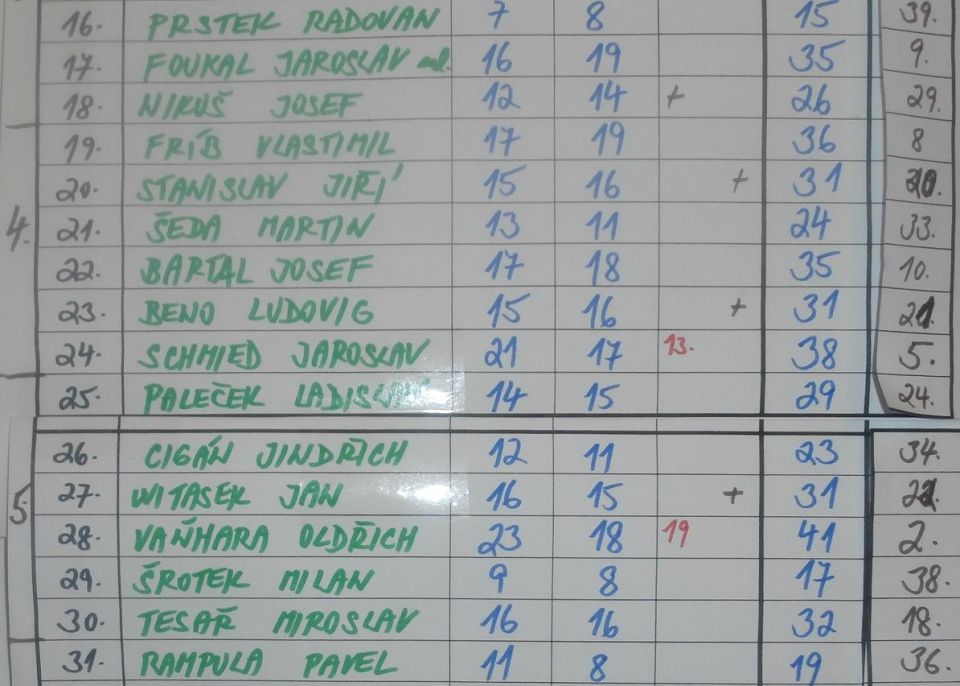 16. PRSTEK RADOVAN 7 8 15 39.
17. FOUKAL JAROSLAV ml. 16 19 35 9.
18. NIKUŠ JOSEF 12 14 + 26 29.
19. FRIB VLASTIMIL 17 19 36 8
4. 20. STANISLAV JIŘÍ 15 16 + 31
21. ŠEDA MARTIN 13 11 24 33.
22. BARTAL JOSEF 17 18 35 10.
23. BENO LUDOVIG 15 16 + 31
24. SCHMIED JAROSLAV 21 17 13. 38 5.
25. PALEČEK LADISLAV 14 15 29 24.
26. CIGÁN JINDŘICH 12 11 23 34.
5 27. WITASEK JAN 16 15 + 31
28. VAŇHARA OLDŘICH 23 18 19 41 2.
29. ŠROTEK MILAN 9 8 17 38.
30. TESAŘ MIROSLAV 16 16 32 18.
31. RAMPULA PAVEL 11 8 19 36.